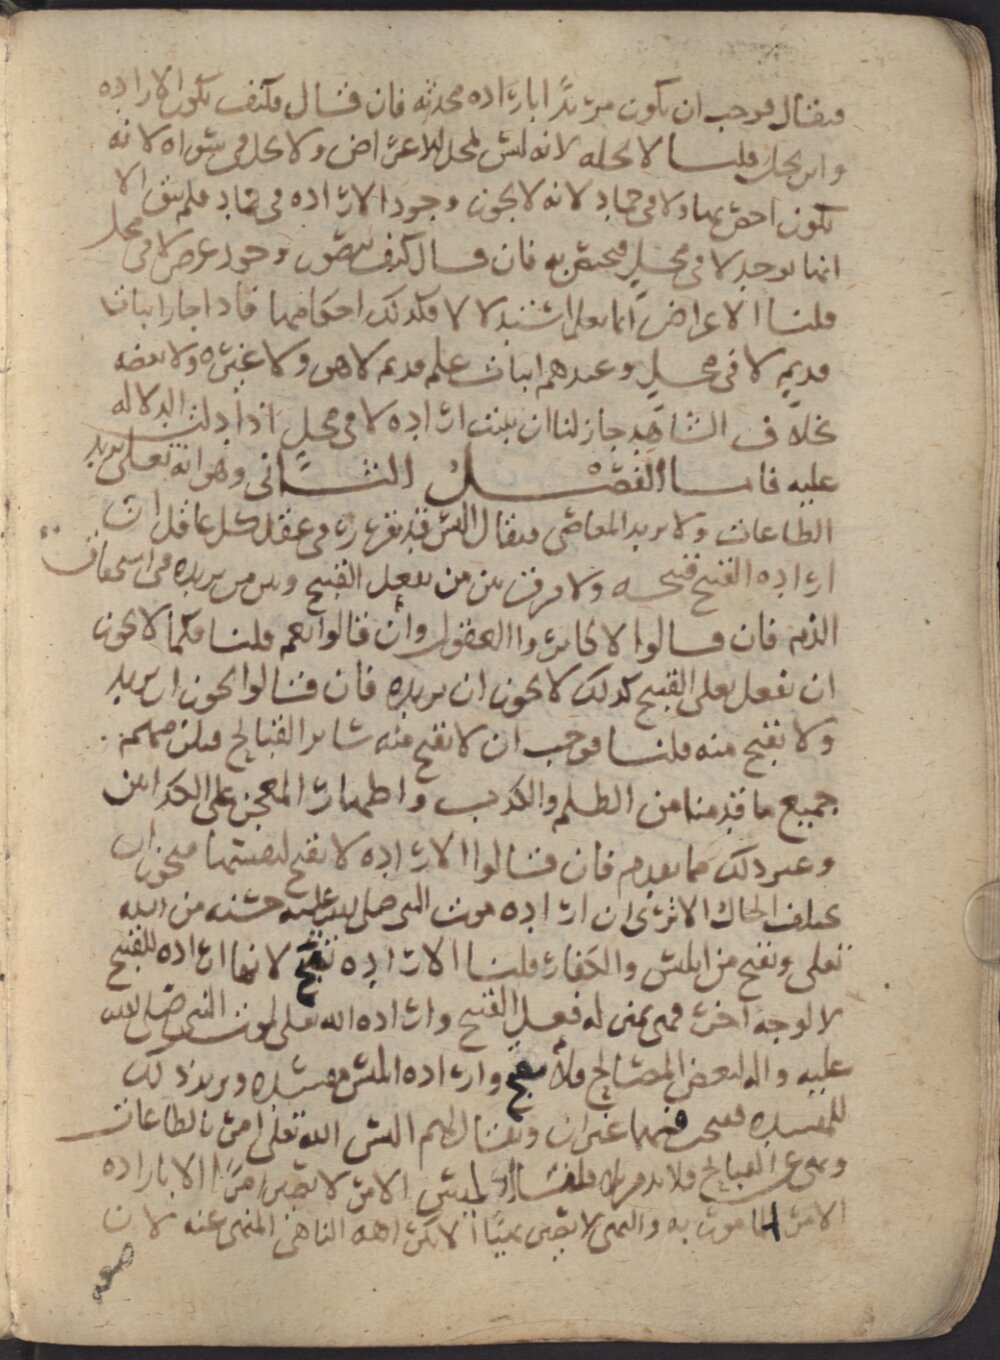 فيقال فوجب ان يكون مريدًا بارادة محدثه فان قال فكيف يكون الارادة
واين يحل قلنا لا تحله لانه ليس بمحل للاعراض ولا تحل في سواه لانه
يكون احق بها ولا في جماد لانه لا يجوز وجود الارادة في جماد فلم يبق الا
انها توجد لا في محل فيختص به فان قال كيف يتصور وجود عرض لا في محل
قلنا الاعراض انما تعلم استدلالا فكذلك احكامها فاذا جاز اثبات
قديم لا في محل وعندهم اثبات علم قديم لا هو ولا غيره ولا بعضه
بخلاف الشاهد جاز لنا ان نثبت ارادة لا في محل اذا دلت الدلالة
عليه فاما الفصل الثاني وهو انه تعلى يريد
الطاعات ولا يريد المعاصي فيقال اليس قد تقرر في عقل كل عاقل ان
ارادة القبيح قبيحه ولا فرق بين من يفعل القبيح وبين من يريده في استحقاق
الذم فان قالوا لا كابروا العقول وان قالوا نعم قلنا فكما لا يجوز
ان يفعل تعلى القبيح كذلك لا يجوز ان يريده فان قالوا يجوز ان يريد
ولا يقبح منه قلنا فوجب ان لا تقبح منه سائر القبائح فيلزمهم
جميع ما قدمنا من الظلم والكذب واظهار المعجز على الكذابين
وغير ذلك مما تقدم فان قالوا الارادة لا تقبح لنفسها فيجوز ان
يختلف الحال الا ترى ان ارادة موت النبي صلى الله عليه حسنه من الله
تعلى وتقبح من ابليس والكفار قلنا الارادة تقبح لانها ارادة للقبيح
لا لوجه اخر فهي بمنزلة فعل القبيح وارادة الله تعلى لموت النبي صلى الله
عليه واله لبعض المصالح فلا تقبح وارادة ابليس مفسدة ويريد ذلك
للمفسدة فقبحت فهما غيران ويقال لهم اليس الله تعلى امر بالطاعات
ونهى عن القبائح فلا بد من بلى قلنا اليس الامر لا يصير امرًا الا بارادة
الامر المامور به والنهي لا يصير نهيًا الا بكراهه الناهي المنهي عنه لان